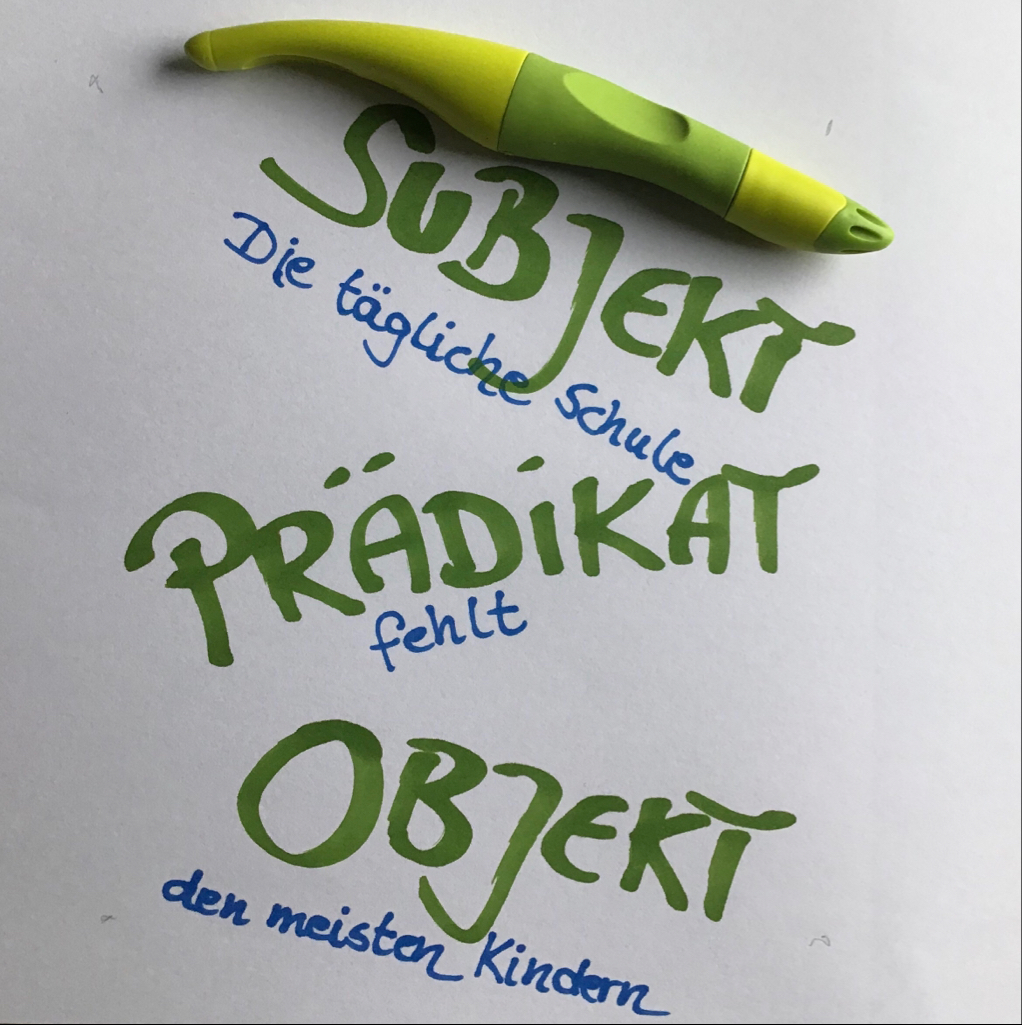 SUBJEKT
Die tägliche Schule
PRÄDIKAT
fehlt
OBJEKT
den meisten Kindern